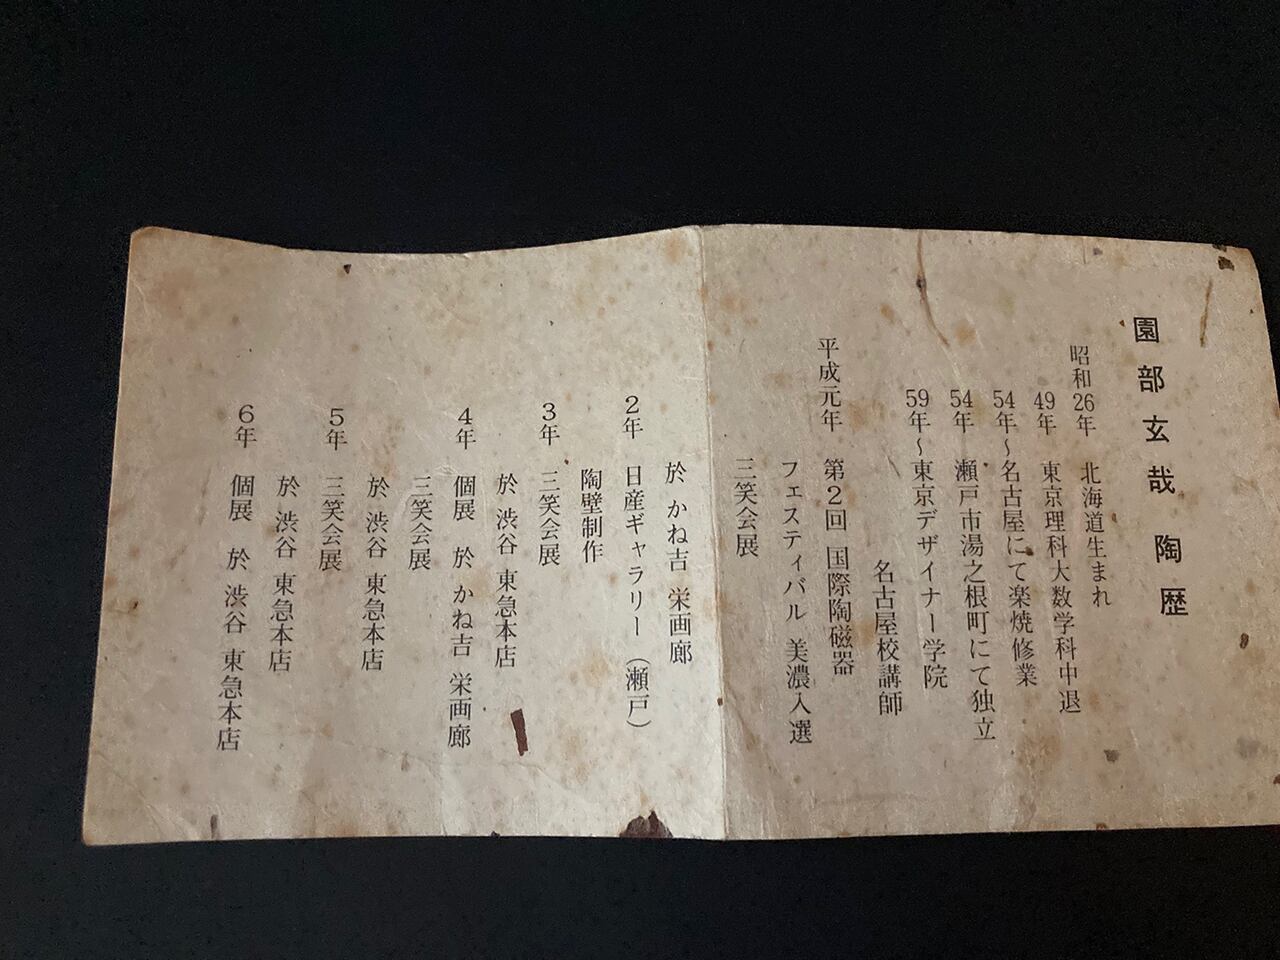 園部玄哉 陶歴
昭和26年 北海道生まれ
49年 東京理科大数学科中退
54年〜名古屋にて楽焼修業
54年 瀬戸市湯之根町にて独立
59年〜東京デザイナー学院
名古屋校講師
平成元年 第2回 国際陶磁器
フェスティバル 美濃入選
三笑会展
於 かね吉 栄画廊
2年 日産ギャラリー(瀬戸)
陶壁制作
3年 三笑会展
於 渋谷 東急本店
4年 個展 於 かね吉 栄画廊
三笑会展
於 渋谷 東急本店
5年 三笑会展
於 渋谷 東急本店
6年 個展 於 渋谷 東急本店